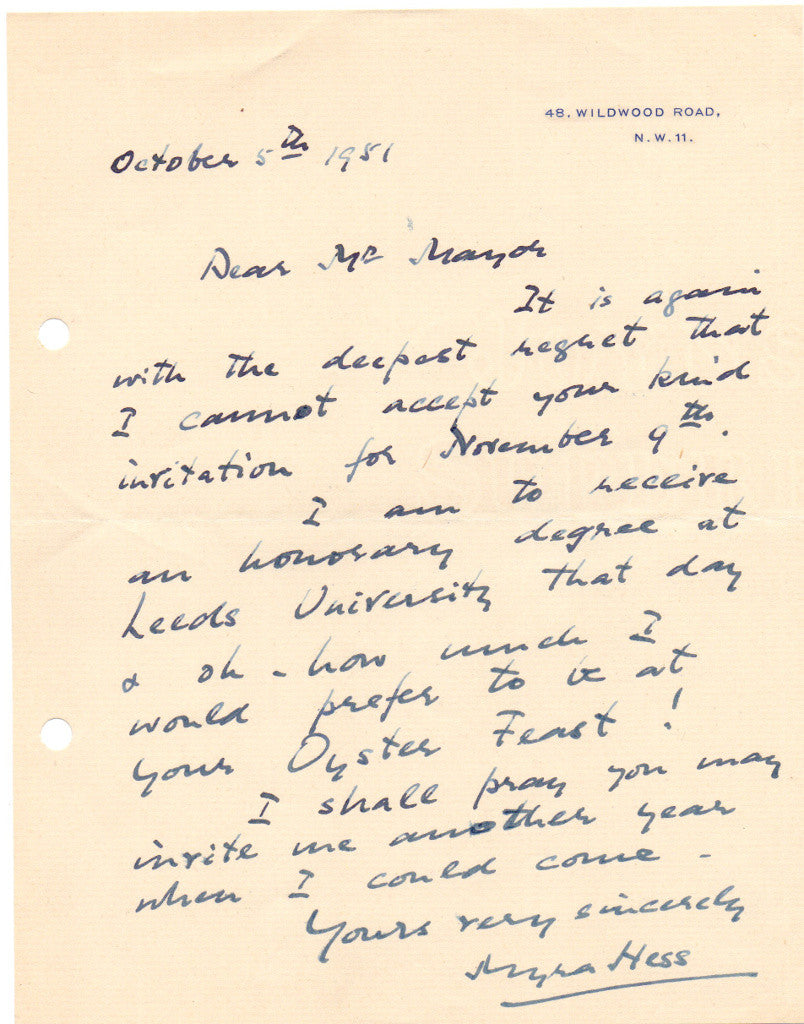 48. WILDWOOD ROAD,
N.W.11.
October 5th 1951
Dear Mr Mayor
It is again
with the deepest regret that
I cannot accept your kind
invitation for November 9th.
I am to receive
an honorary degree at
Leeds University that day
& oh - how much I
would prefer to be at
your Oyster Feast!
I shall pray you may
invite me another year
when I could come -
Yours very sincerely
Myra Hess